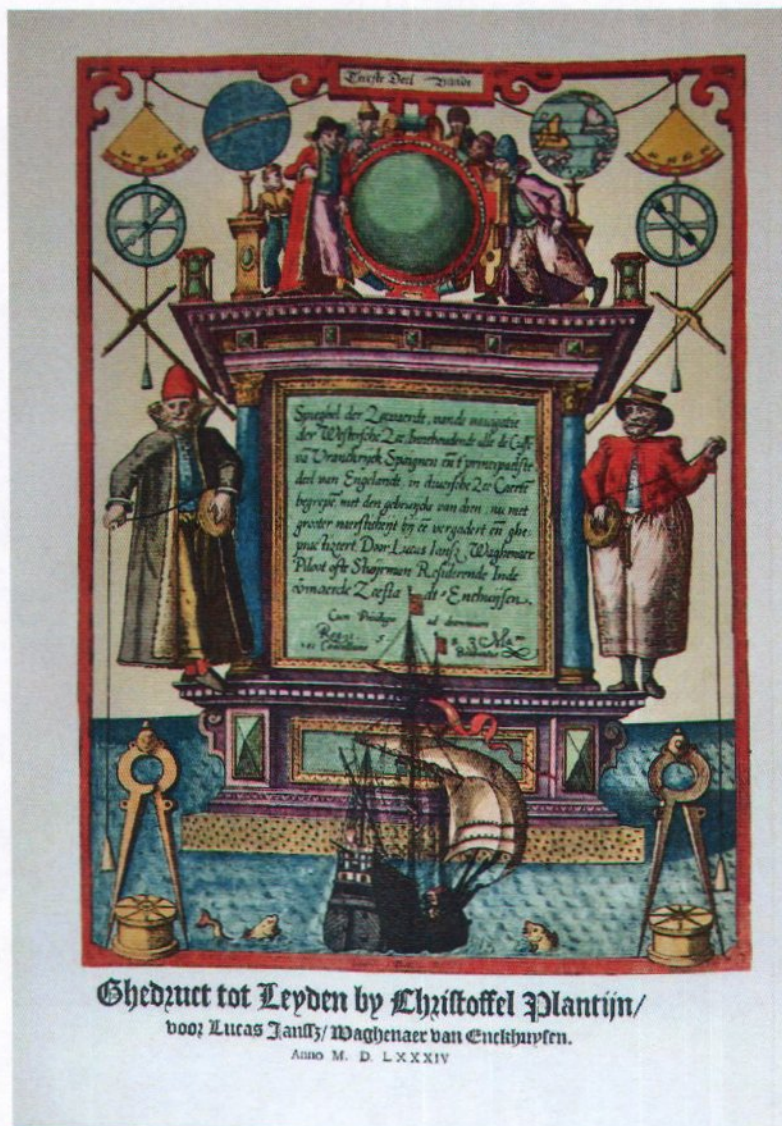 Eerste Deel
Spieghel der Zeevaerdt, vande navigatie
der Westersche Zee, Innehoudende alle de Custē
vā Vranckrijck Spaignen eñ t'principaelste
deel van Engelandt, in diuersche Zee Caertē
begrepē, met den gebruijcke van dien, nu met
grooter naersticheijt bij eē vergadert eñ ghe,
practizeert Door Lucas Iansz Waghenaer
Piloot ofte Stuijrman Residerende Inde
vermaerde Zeestadt Enchuijsen.
Cum Privilegio ad
Ghedruct tot Leyden by Christoffel Plantijn/
voor Lucas Janssz/ Waghenaer van Enckhuysen.
Anno M. D. LXXXIV